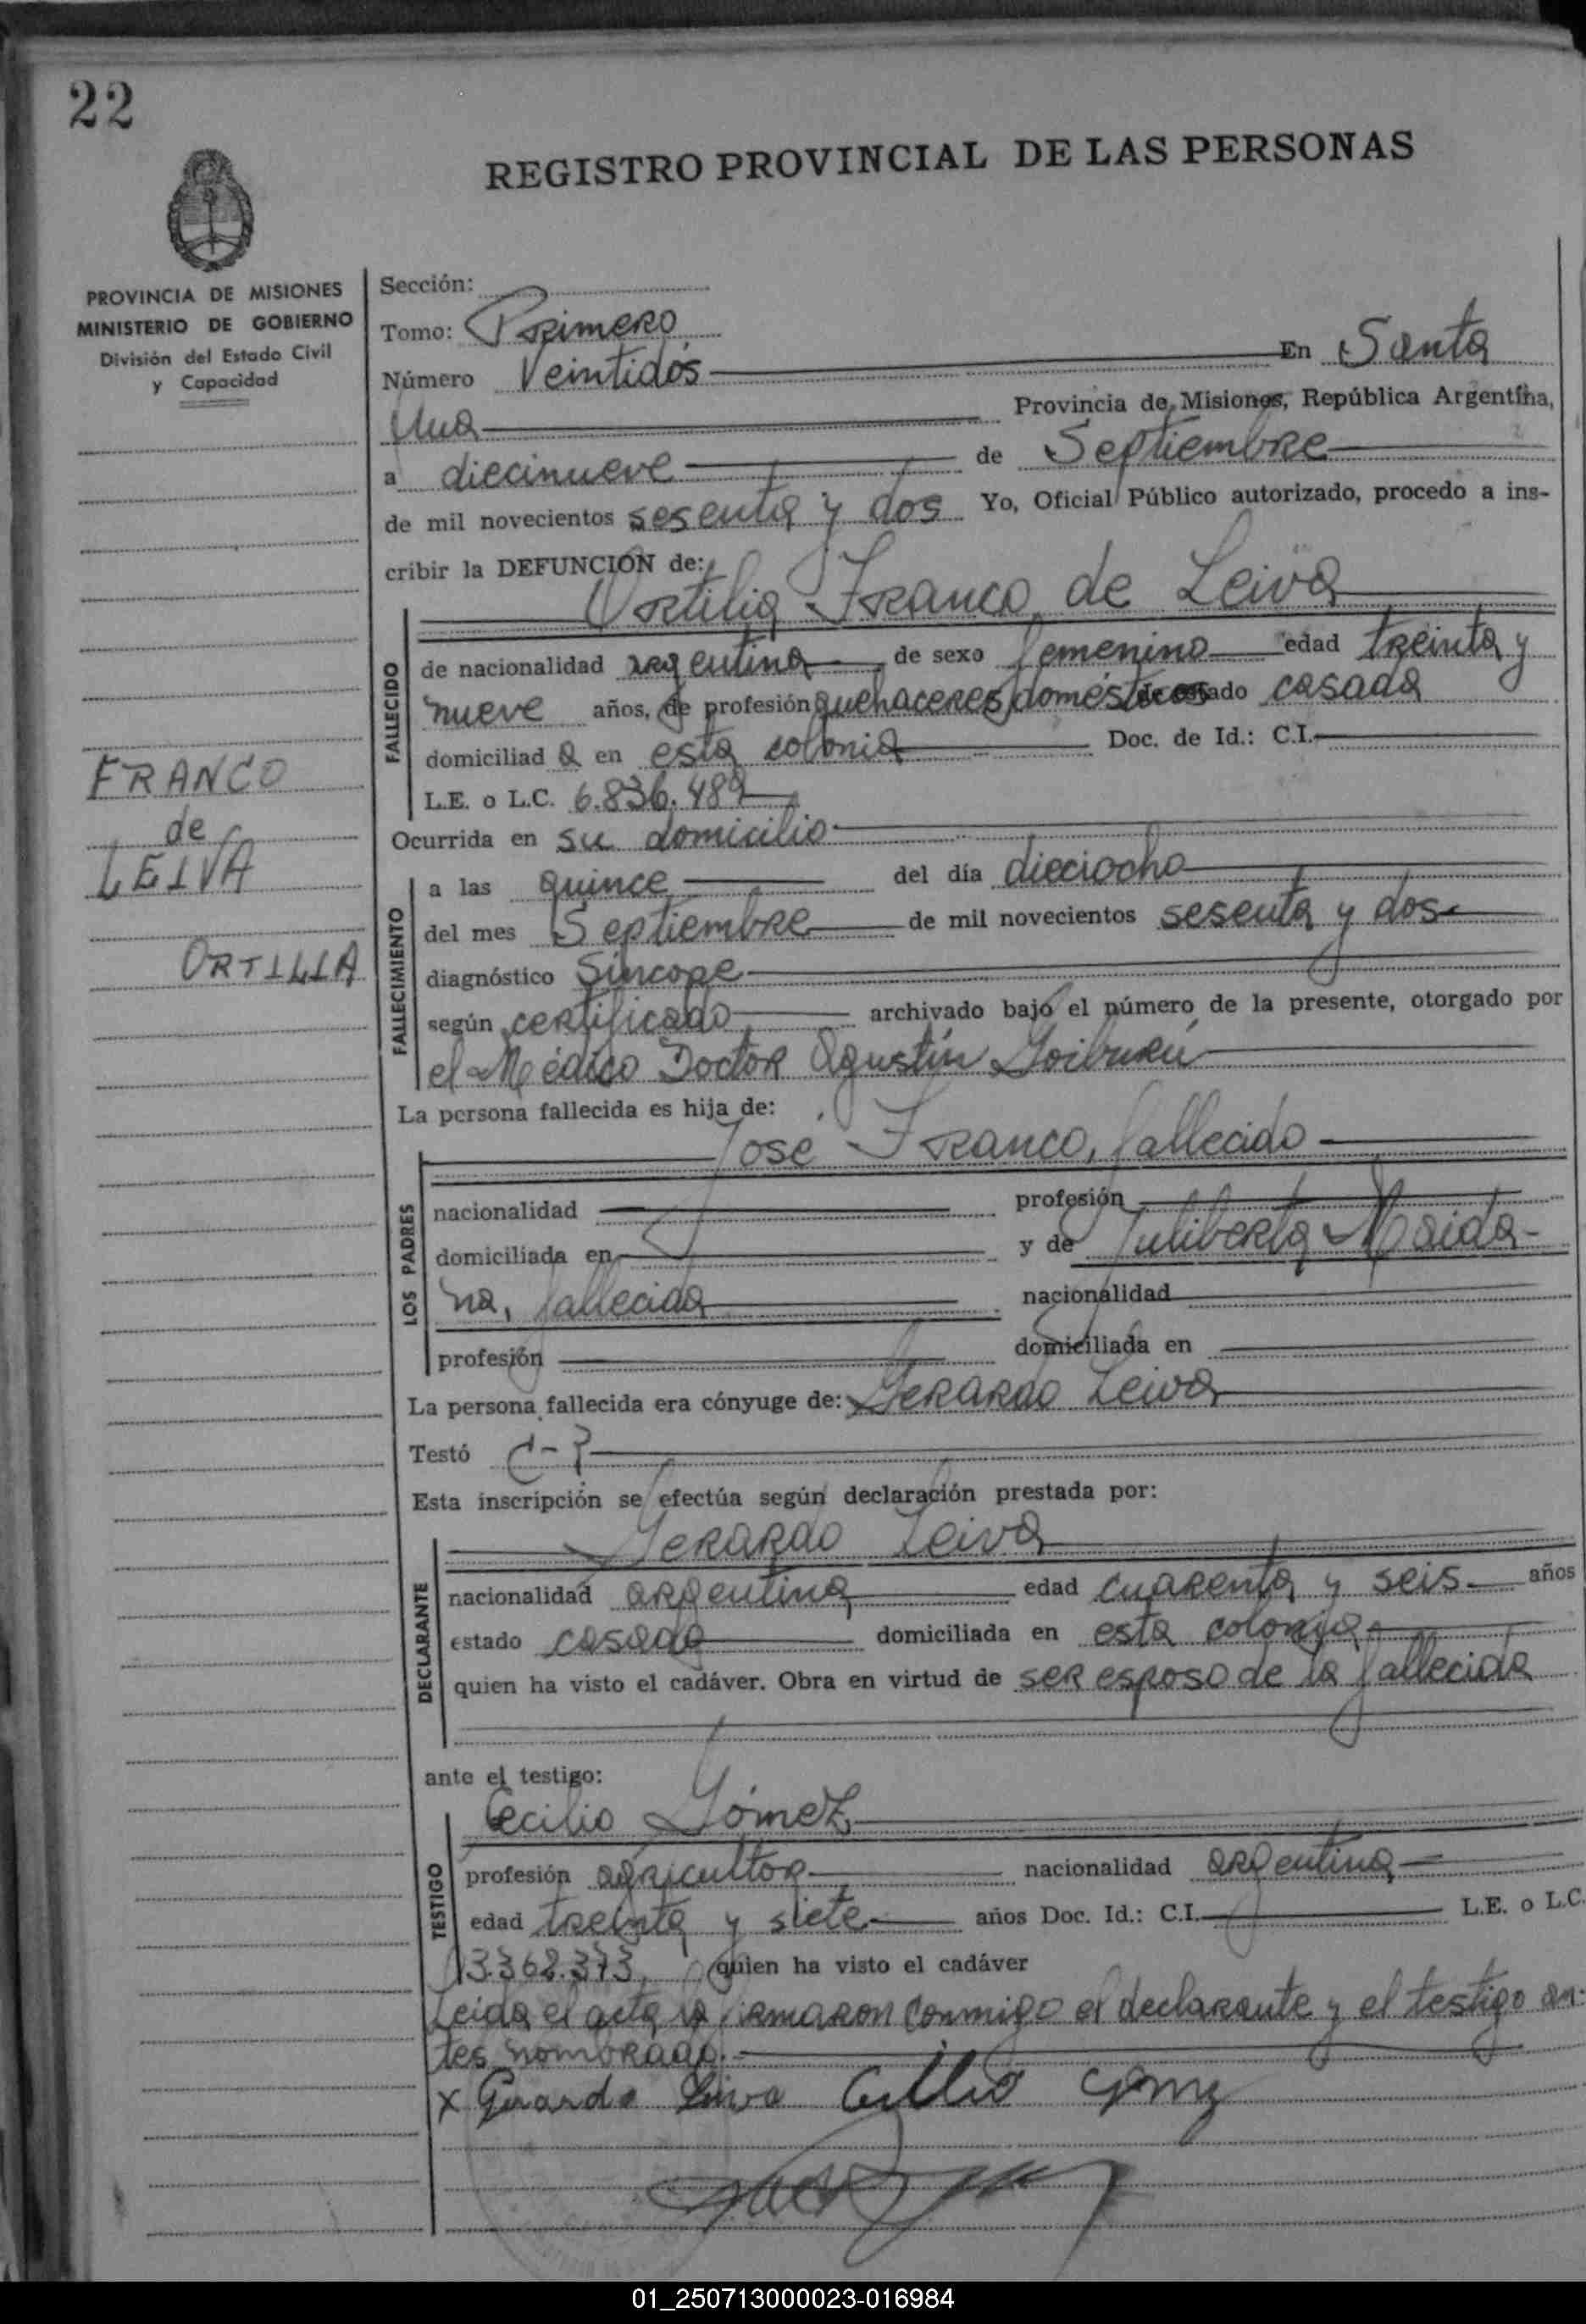 22
REGISTRO PROVINCIAL DE LAS PERSONAS
PROVINCIA DE MISIONES
MINISTERIO DE GOBIERNO
División del Estado Civil
y Capacidad
FRANCO
de
LEIVA
ORTILIA
Sección:
Tomo: Primero
Número Veintidós En Santa
Ana Provincia de Misiones, República Argentina,
a diecinueve de Septiembre
de mil novecientos sesenta y dos Yo, Oficial Público autorizado, procedo a ins-
cribir la DEFUNCION de:
Ortilia Franco de Leiva
FALLECIDO
de nacionalidad argentina de sexo femenino edad treinta y
nueve años, de profesión quehaceres domésticos de estado casada
domiciliad a en esta colonia Doc. de Id.: C.I.
L.E. o L.C. 6.836.489
Ocurrida en su domicilio
FALLECIMIENTO
a las quince del día dieciocho
del mes Septiembre de mil novecientos sesenta y dos
diagnóstico Síncope
según certificado archivado bajo el número de la presente, otorgado por
el Médico Doctor Agustín Goiburú
La persona fallecida es hija de:
José Franco, fallecido
LOS PADRES
nacionalidad profesión
domiciliada en y de Juliberta Maida-
na, fallecida nacionalidad
profesión domiciliada en
La persona fallecida era cónyuge de: Gerardo Leiva
Testó
Esta inscripción se efectúa según declaración prestada por:
Gerardo Leiva
DECLARANTE
nacionalidad argentina edad cuarenta y seis años
estado casado domiciliada en esta colonia
quien ha visto el cadáver. Obra en virtud de ser esposo de la fallecida
ante el testigo:
Cecilio Gómez
TESTIGO
profesión agricultor nacionalidad argentina
edad treinta y siete años Doc. Id.: C.I. L.E. o L.C.
3.362.373, quien ha visto el cadáver
Leida el acta la firmaron conmigo el declarante y el testigo an-
tes nombrado.-
x Gerardo Leiva Cecilio Gomez
01_250713000023-016984